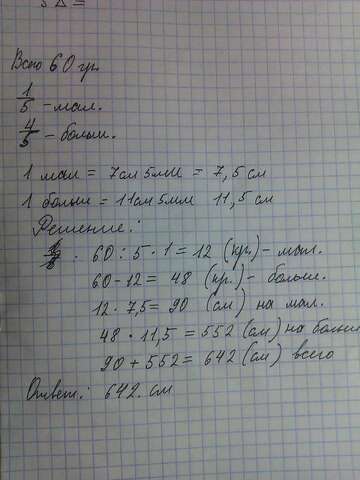 Всего 60 гр.
1/5 - мал.
4/5 - больш.
1 мал = 7см 5мм = 7,5 см
1 больш = 11см 5мм 11,5 см
Решение:
60 : 5 · 1 = 12 (кр.) - мал.
60 - 12 = 48 (кр.) - больш.
12 · 7,5 = 90 (см) на мал.
48 · 11,5 = 552 (см) на больш
90 + 552 = 642 (см) всего
Ответ: 642. см